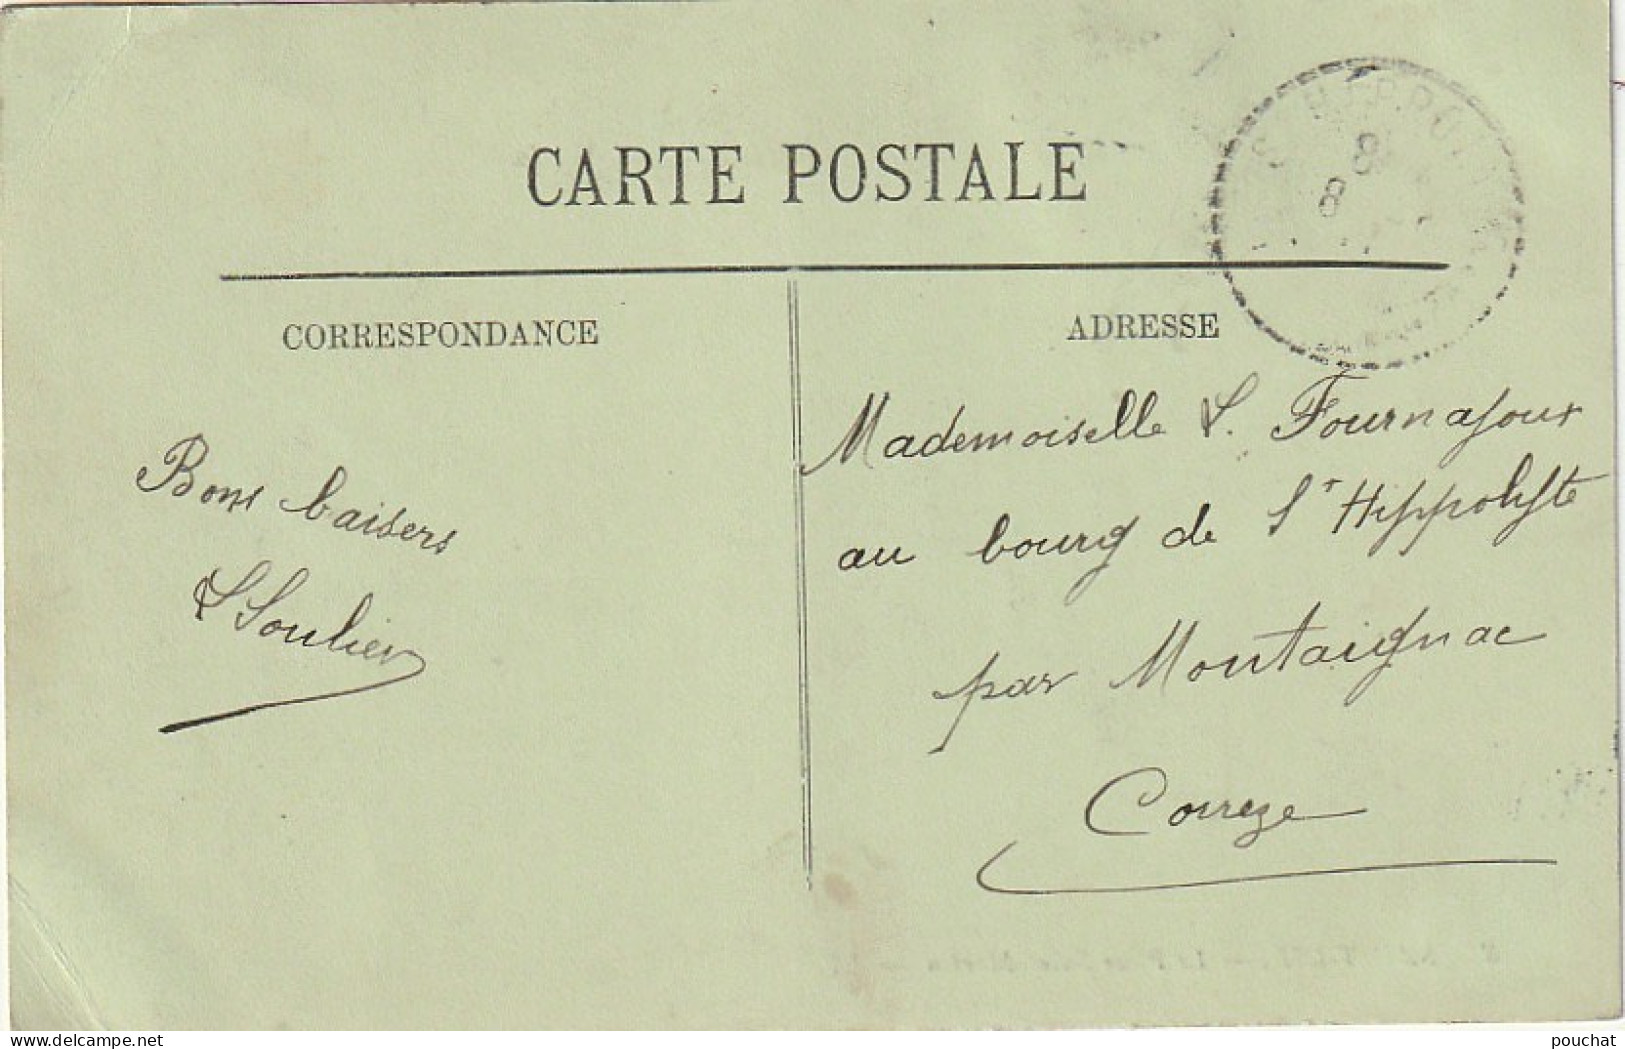 CARTE POSTALE
CORRESPONDANCE
ADRESSE
Bons baisers
S Soulier
Mademoiselle S. Fournajoux
au bourg de St Hippolyte
par Montaignac
Correze
8
8
www.delcampe.net
pouchat